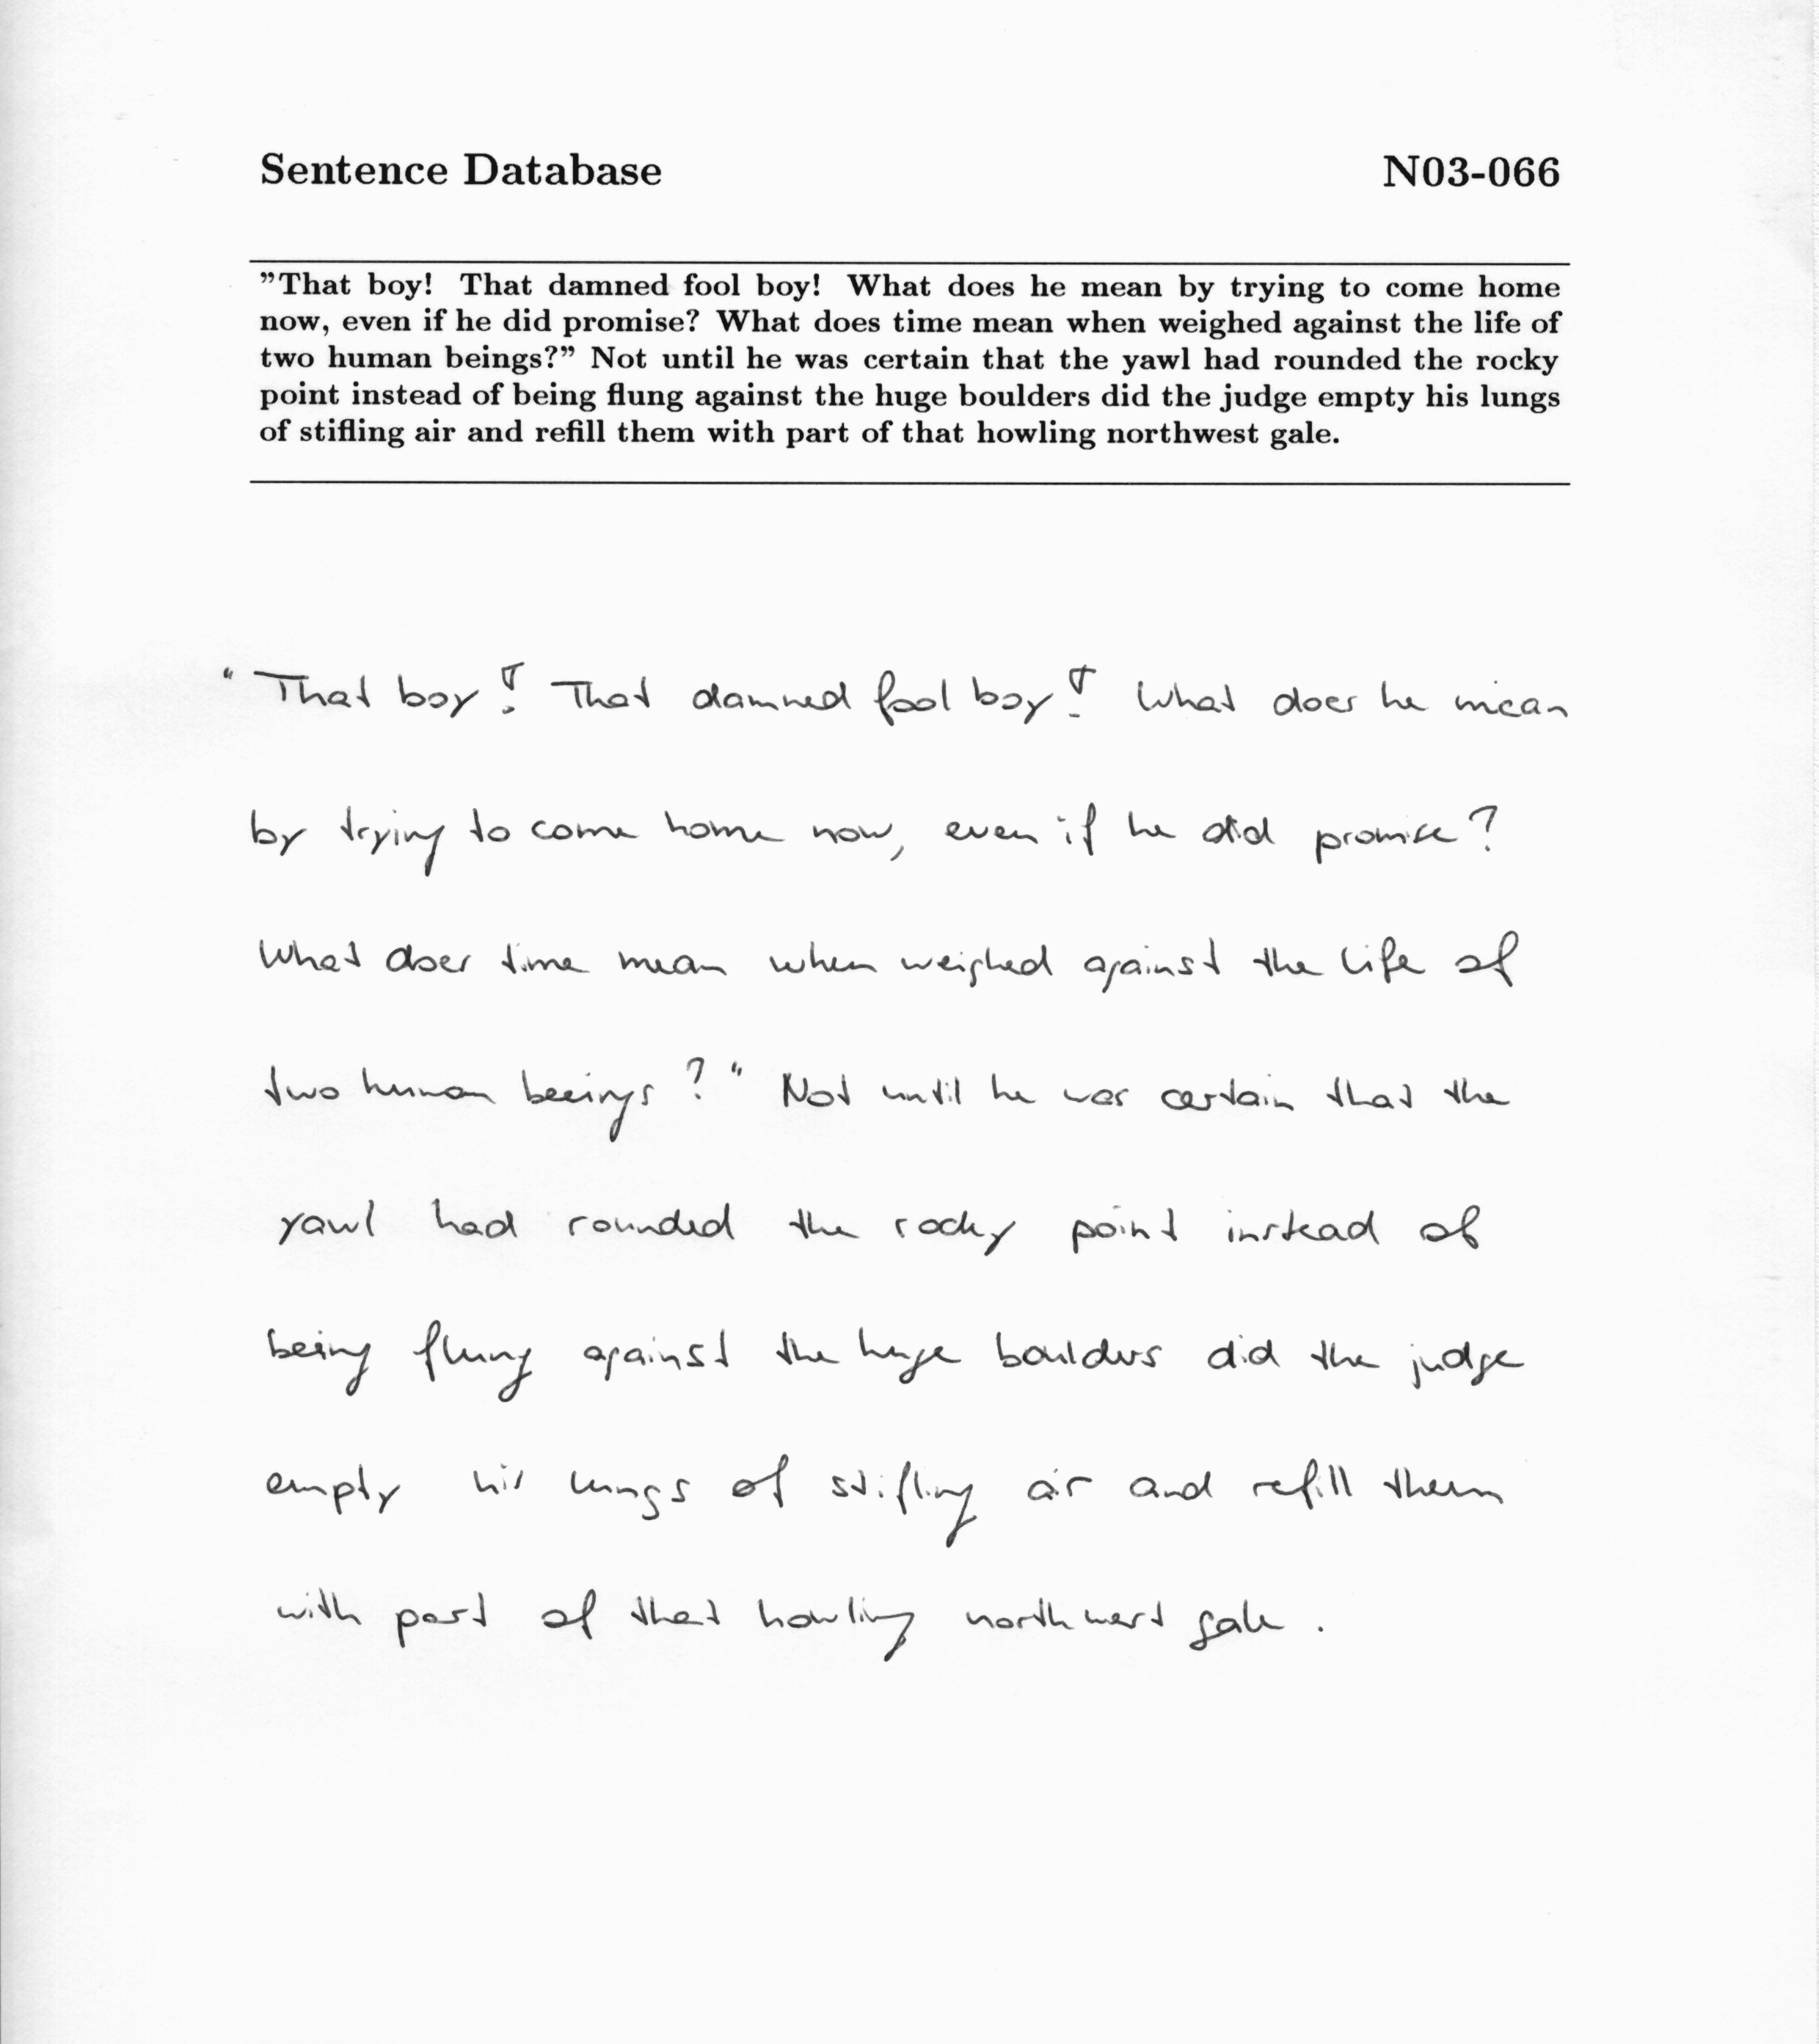 Sentence Database N03-066
”That boy! That damned fool boy! What does he mean by trying to come home
now, even if he did promise? What does time mean when weighed against the life of
two human beings?” Not until he was certain that the yawl had rounded the rocky
point instead of being flung against the huge boulders did the judge empty his lungs
of stifling air and refill them with part of that howling northwest gale.
"That boy! That damned fool boy! What does he mean
by trying to come home now, even if he did promise?
What does time mean when weighed against the life of
two human beeings?" Not until he was certain that the
yawl had rounded the rocky point instead of
being flung against the huge boulders did the judge
empty his lungs of stifling air and refill them
with part of that howling northwest gale.